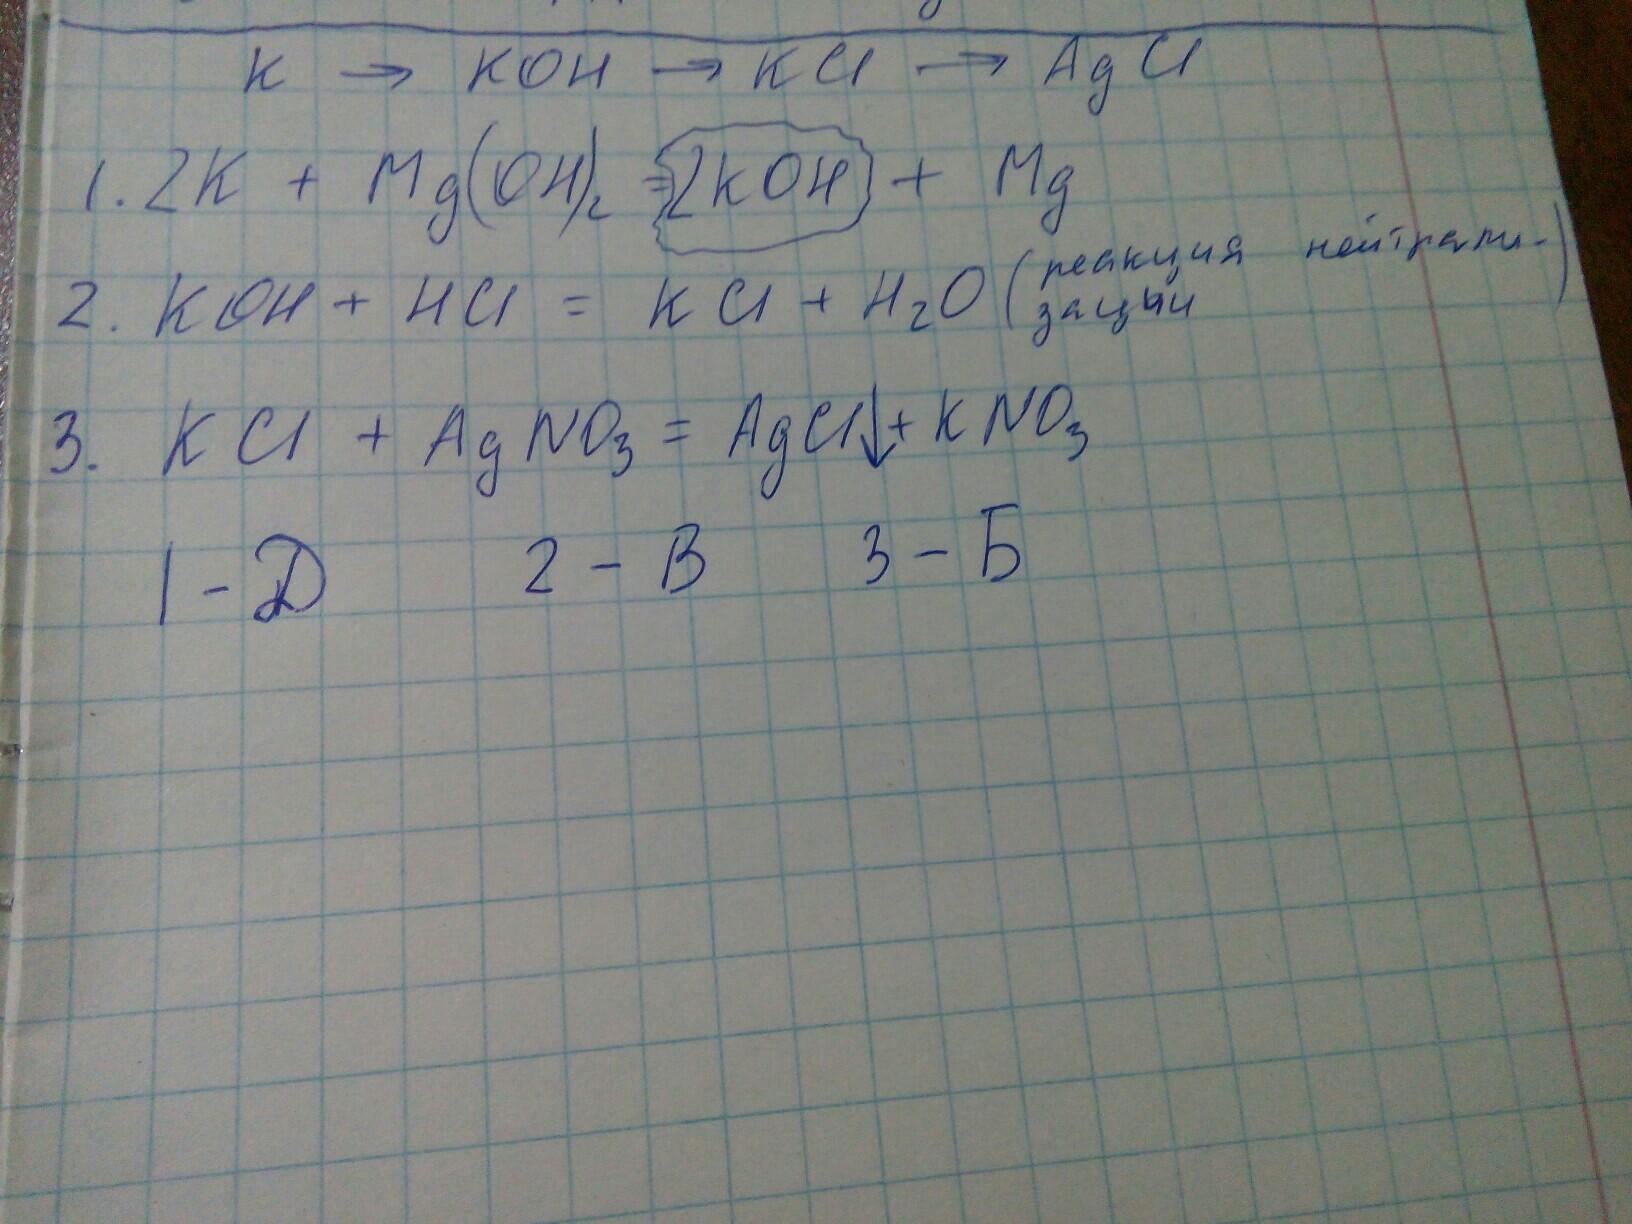 K → KOH → KCl → AgCl
1. 2K + Mg(OH)₂ = 2KOH + Mg
2. KOH + HCl = KCl + H₂O (реакция нейтрали-
зацыи)
3. KCl + AgNO₃ = AgCl↓ + KNO₃
1 - Д 2 - В 3 - Б